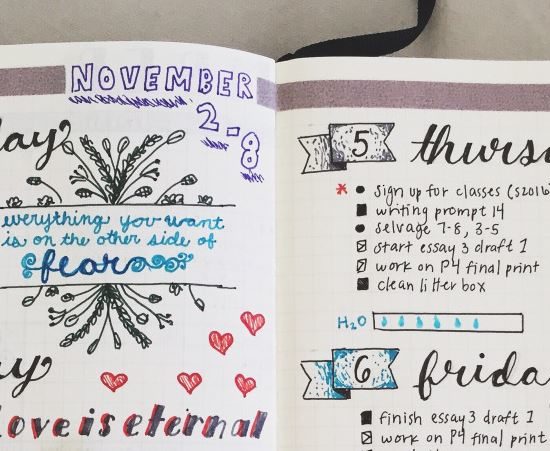 NOVEMBER
2-8
day
everything you want
is on the other side of
fears
ay
love is eternal
5 thurs
sign up for classes (S2016
writing prompt 14
selvage 7-8, 3-5
start essay 3 draft 1
work on P4 final print
clean litter box
H2O
6 frida
finish essay 3 draft 1
work on P4 final print